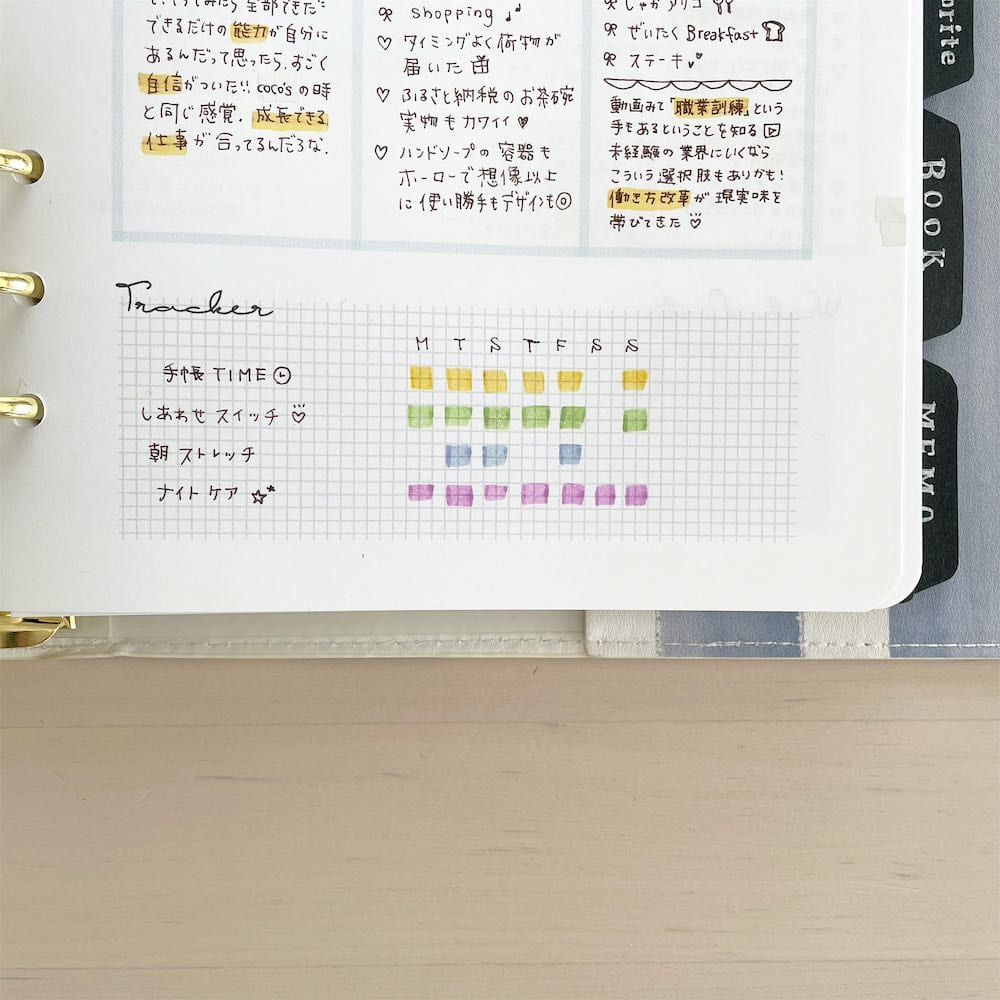 全部できた!!
できるだけの能力が自分に
あるんだって思ったら、すごく
自信がついた!! coco'sの時
と同じ感覚. 成長できる
仕事が合ってるんだろな.
shopping ♪♪
♡ タイミングよく荷物が
届いた
♡ ふるさと納税のお茶碗
実物もカワイイ♥
♡ ハンドソープの容器も
ホーローで想像以上
に使い勝手もデザインも◎
じゃがアリゴ
ぜいたく Breakfast
ステーキ
動画みて「職業訓練」という
手もあるということを知る
未経験の業界にいくなら
こういう選択肢もありかも!
働き方改革が現実味を
帯びてきた♡
Tracker
M T S T F S S
手帳TIME
しあわせスイッチ♡
朝ストレッチ
ナイトケア☆
orite
BooK
MEMO